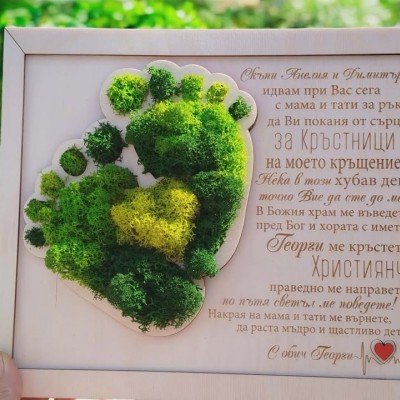 Скъпи Анелия и Димитър
идвам при Вас сега
с мама и тати за ръка
да Ви поканя от сърц
за Кръстници
на моето кръщение
Нека в този хубав ден
точно Вие да сте до ме
В Божия храм ме въведет
пред Бог и хората с имет
Георги ме кръстет
Християнч
праведно ме направет
по пътя светъл ме поведете!
Накрая на мама и тати ме върнете,
да раста мъдро и щастливо дет
С обич Георги